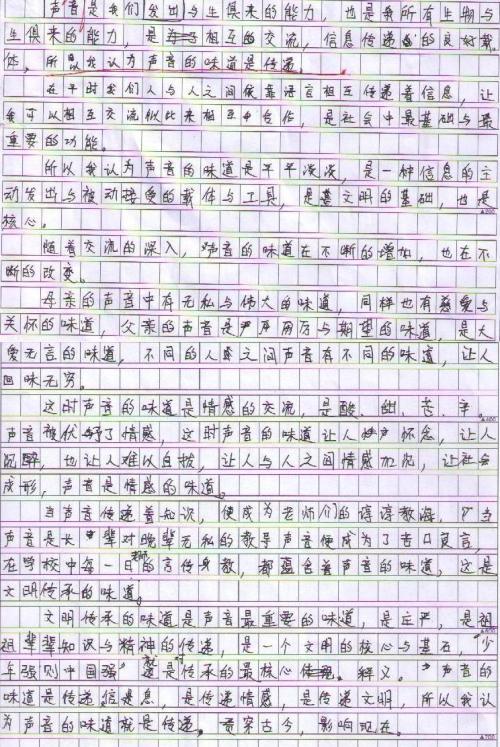 声音是我们发出与生俱来的能力，也是我所有生物与
生俱来的能力，是相互的交流，信息传递的良好载
体，所以我认为声音的味道是传递。
在平时我们人与人之间依靠语言相互传递着信息，让
我可以相互交流以此来相互合作，是社会中最基础与最
重要的功能。
所以我认为声音的味道是平平淡淡，是一种信息的主
动发出与被动接受的载体与工具，是文明的基础，也是
核心。
随着交流的深入，声音的味道在不断的增加，也在不
断的改变。
母亲的声音中有无私与伟大的味道，同样也有慈爱与
关怀的味道，父亲的声音是严厉与期望的味道，是大
爱无言的味道，不同的人之间声音有不同的味道，让人
回味无穷。
这时声音的味道是情感的交流，是酸、甜、苦、辛。
声音被赋予了情感，这时声音的味道让人怀念，让人
沉醉，也让人难以自拔，让人与人之间情感加沉，让社会
成形，声音是情感的味道。
当声音传递着知识，便成为老师们的谆谆教诲，当
声音是长辈对晚辈无私的教导声音便成为了苦口良言，
在学校中每一日都的言传身教，都蕴含着声音的味道，这是
文明传承的味道。
文明传承的味道是声音最重要的味道，是庄严，是祖
祖辈辈知识与精神的传递，是一个文明的核心与基石，"少
年强则中国强"就是传承的最核心释义。声音的
味道是传递信息，是传递情感，是传递文明，所以我认
为声音的味道就是传递，贯穿古今，影响现在。